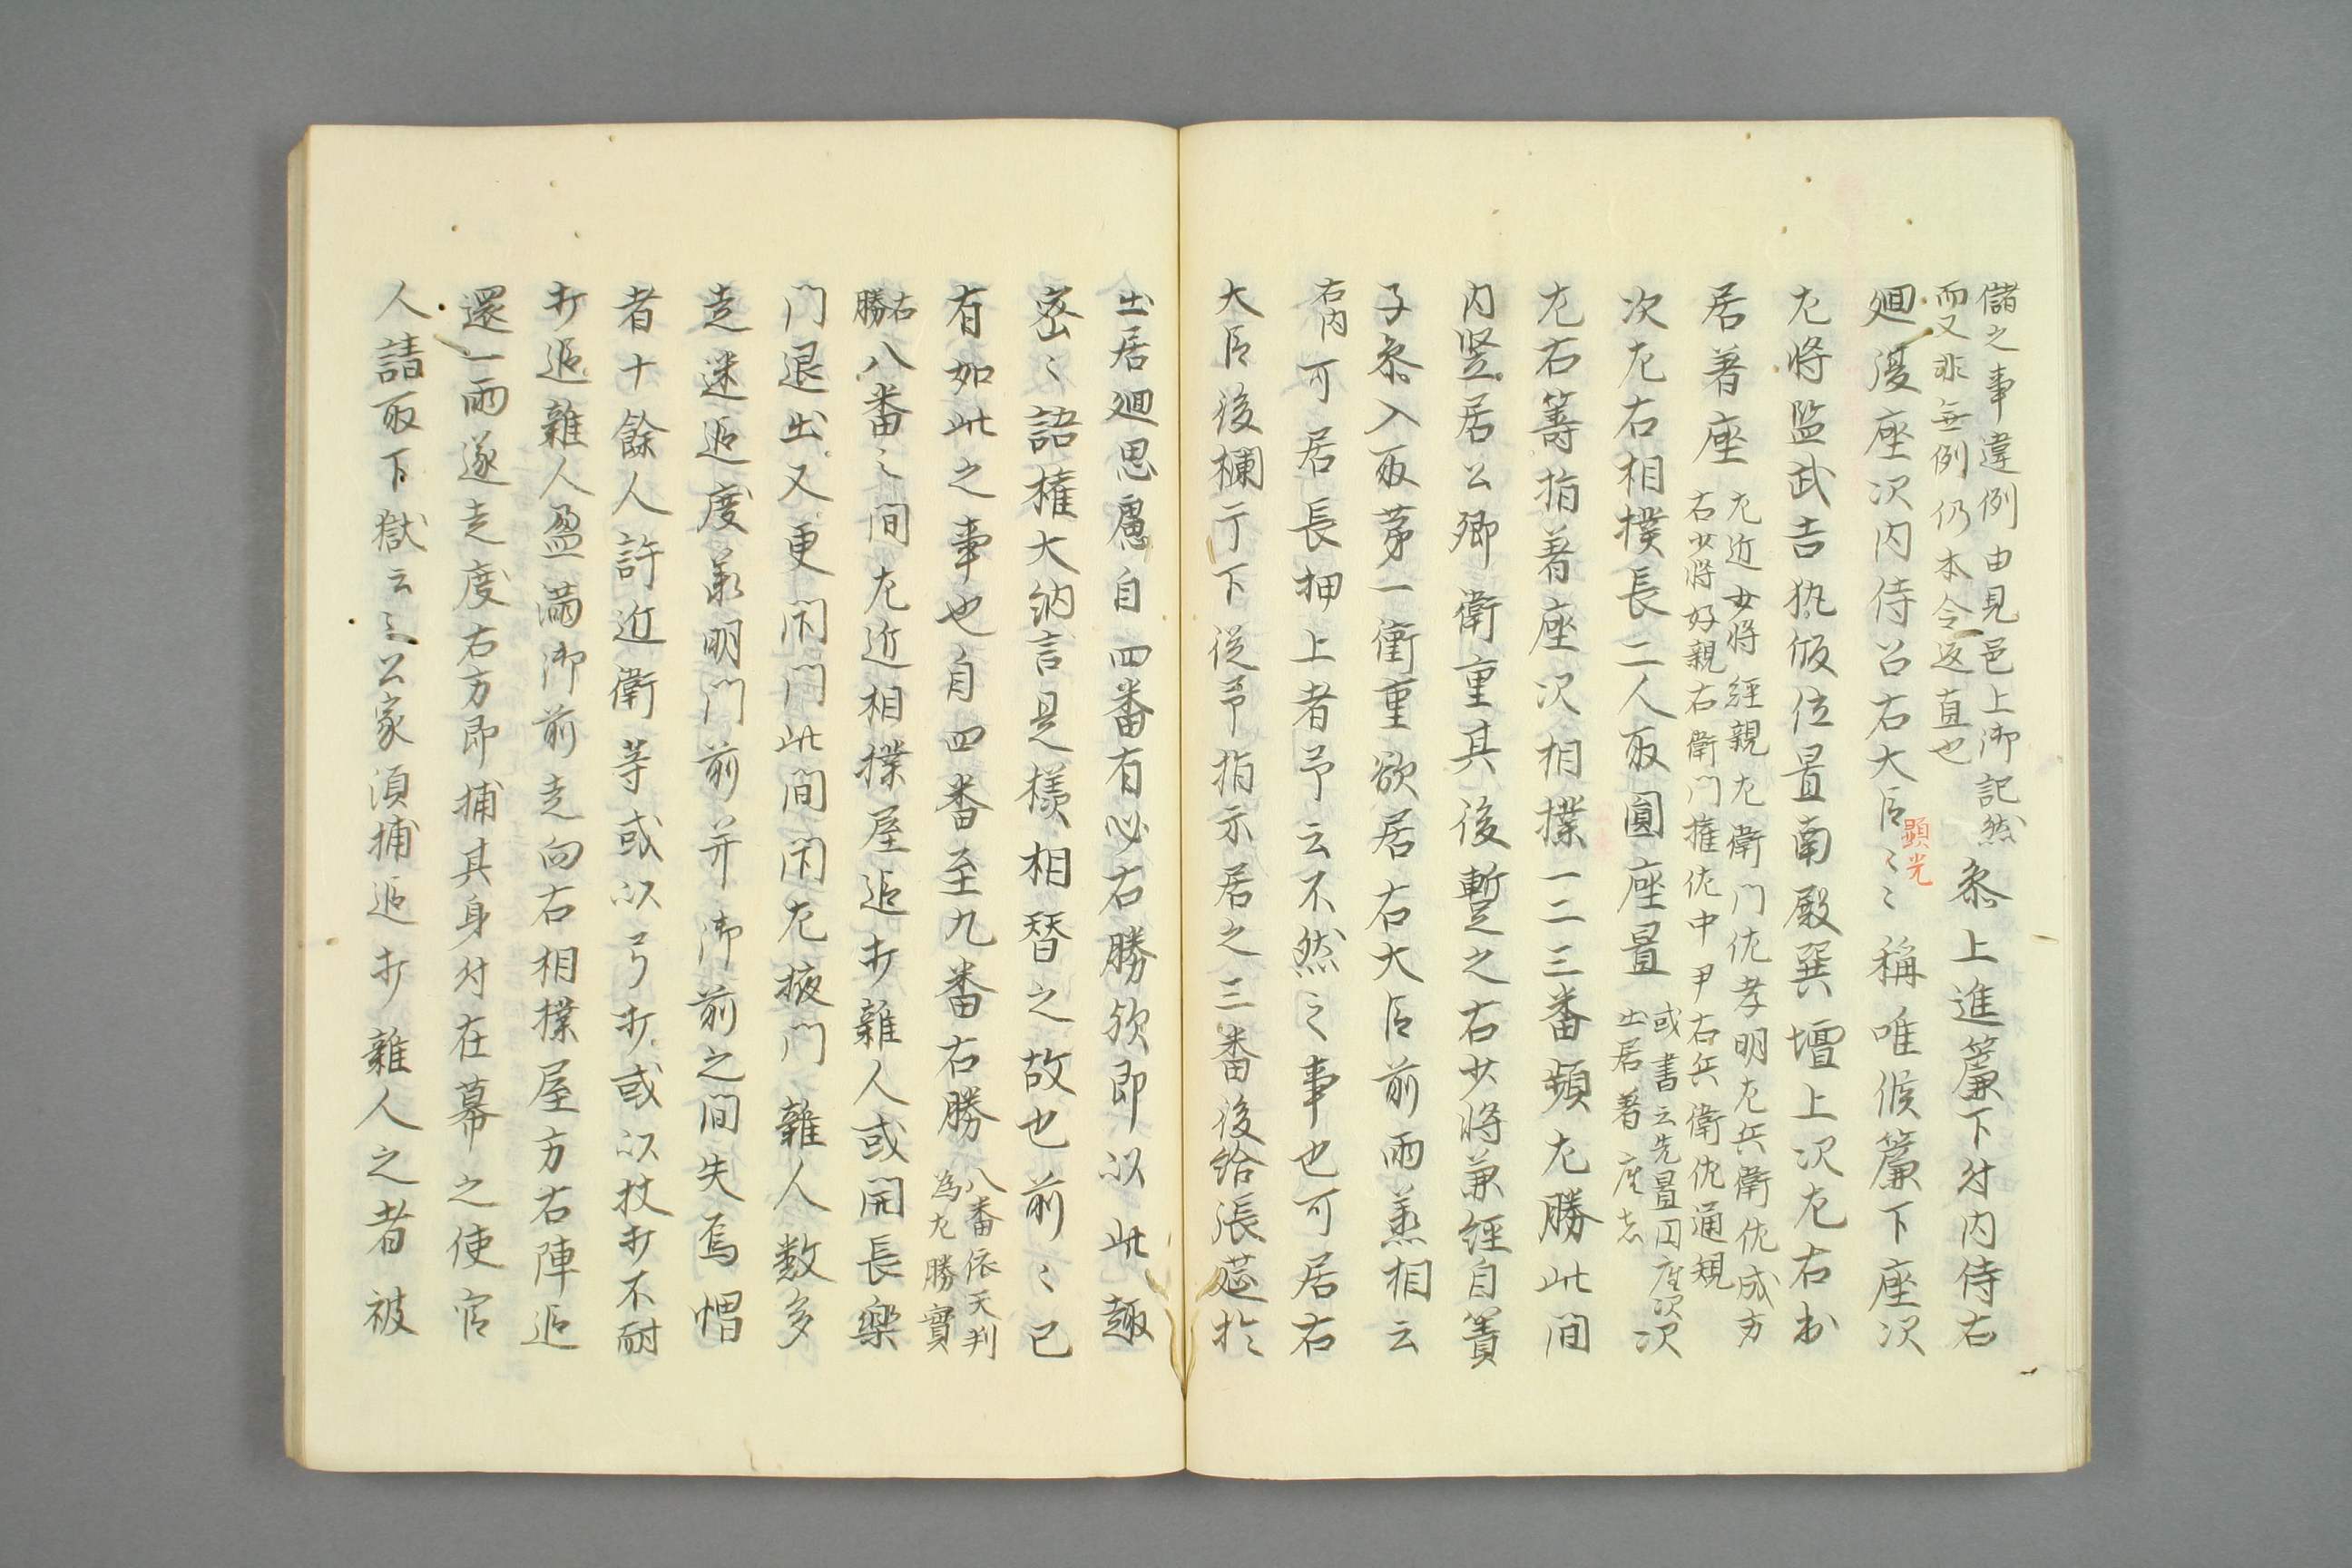 儲之事違例由見邑上御記然
而又非無例仍本令返直也
参上進簾下付内侍右
廻復座次内侍召右大臣〻〻稱唯候簾下座次
顕光
左將監武吉執版位置南殿巽壇上次左右出
居著座
左近少將経親左衛門佐孝明左兵衛佐成方
右少將好親右衛門権佐中尹右兵衛佐通規
次左右相撲長二人取圓座置
或書云先置円座次
出居著座者
次
左右籌指著座次相撲一二三番頻左勝此間
内竪居公卿衝重其後暫之右少將兼經自簀
子参入取第一衝重欲居右大臣前而兼相云
右内
可居長押上者予云不然之事也可居右
大臣後欄干下従予指示居之三番後給張莚於
出居廻思慮自四番有必右勝欤即以此趣
密〻語権大納言是様相替之故也前〻已
有如此之事也自四番至九番右勝
八番依天判
為左勝實
右
勝
八番之間左近相撲屋追打雜人或開長樂
門退出又更閇門此間閇左掖門雜人数多
走迷追度承明門前并御前之間失烏帽
者十餘人許近衛等或以弓打或以杖打不耐
打追雜人盈満御前走向右相撲屋方右陣追
還一両遂走度右方即捕其身付在幕之使官
人請取下獄云〻公家須捕追打雜人之者被